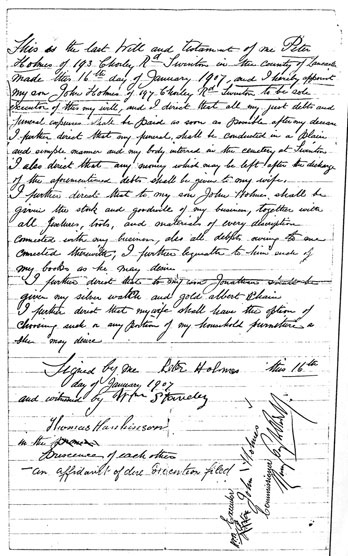 This is the last Will and testament of me Peter
Holmes of 193 Chorley Rd Swinton in the County of Lancaster
made this 16th day of January 1907, and I hereby appoint
my son John Holmes of 197 Chorley Rd Swinton to be sole
executor of this my will, and I direct that all my just debts and
funeral expenses shall be paid as soon as possible after my decease
I further direct that my funeral shall be conducted in a plain
and simple manner and my body interred in the cemetery at Swinton
I also direct that any money which may be left after the discharge
of the aforementioned debts shall be given to my wife,
I further direct that to my son John Holmes shall be
given the stock and goodwill of my business, together with
all fixtures, tools, and materials of every description
connected with my business, also all debts owing to me
connected therewith, I further bequeathe to him such of
my books as he may desire
I further direct that to my son Jonathan shall be
given my silver watch and gold albert chain
I further direct that my wife shall have the option of
choosing such or any portion of my household furniture as
she may desire
Signed by me Peter Holmes this 16th
day of January 1907
and witnessed by
Thomas Hankinson
in the
presence of each other
- an affidavit of due Execution filed
John Holmes